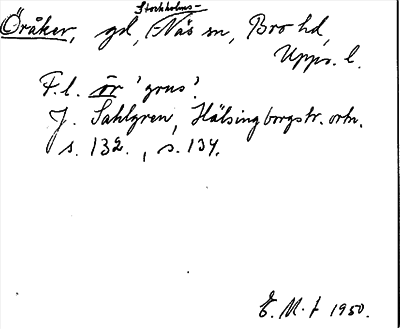 Öråker, gd, Stockholms-Näs sn, Bro hd,
Upps. l.
F.l. ör 'grus'.
J. Sahlgren, Hälsingborgstr. ortn.
s. 132., s. 134.
E. M-t 1950.